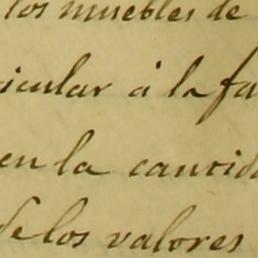 los muebles de
icular á la fa
en la cantida
de los valores